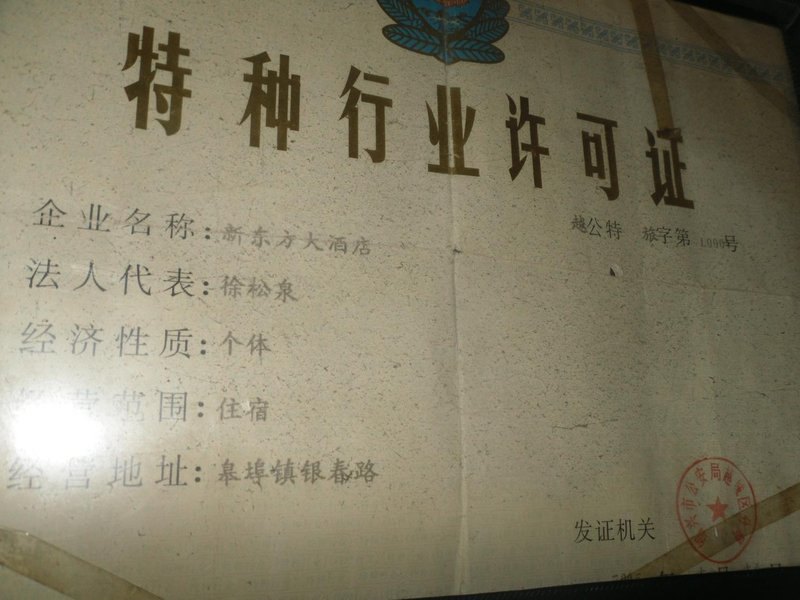 特种行业许可证
越公特 旅字第L090号
企业名称:新东方大酒店
法人代表:徐松泉
经济性质:个体
经营范围:住宿
经营地址:皋埠镇银春路
发证机关